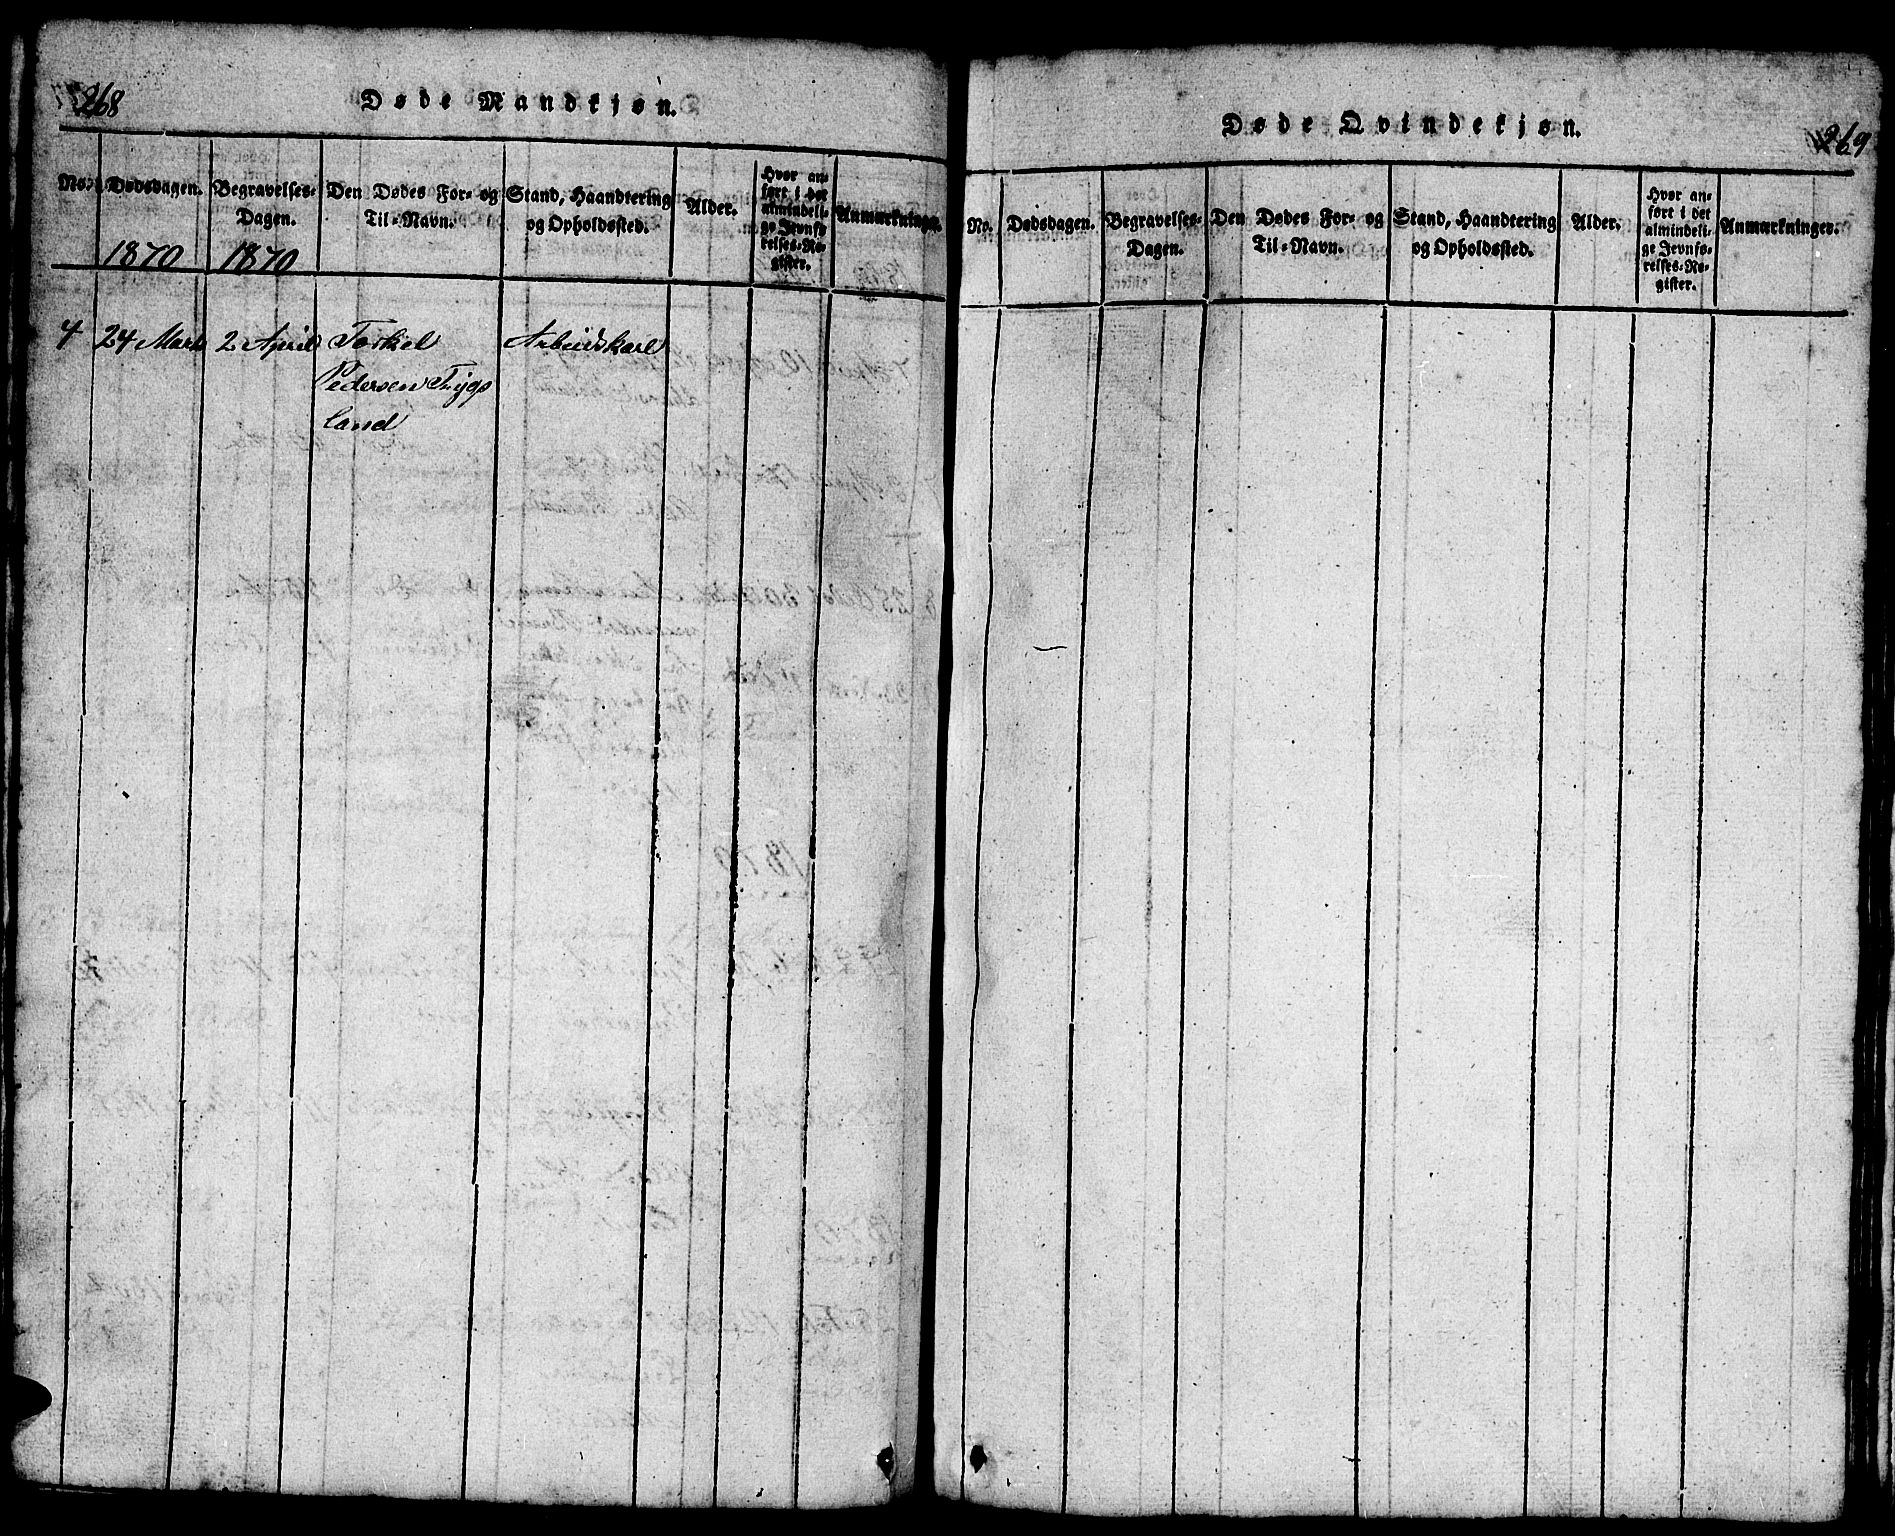 268
Døde Mandkjøn.
No. Dødsdagen. Begravelses-Dagen. Den Dødes For- og Til-Navn. Stand, Haandtering og Opholdssted. Alder. Hvor anført i det almindelige Jevnførelses-Register. Anmærkninger.
1870 1870
4 24 Marts 2 April Torkel Arbeidskarl
Pedersen Trygs
land
Døde Qvindekjøn.
269
No. Dødsdagen. Begravelses-Dagen. Den Dødes For- og Til-Navn. Stand, Haandtering og Opholdssted. Alder. Hvor anført i det almindelige Jevnførelses-Register. Anmærkninger.